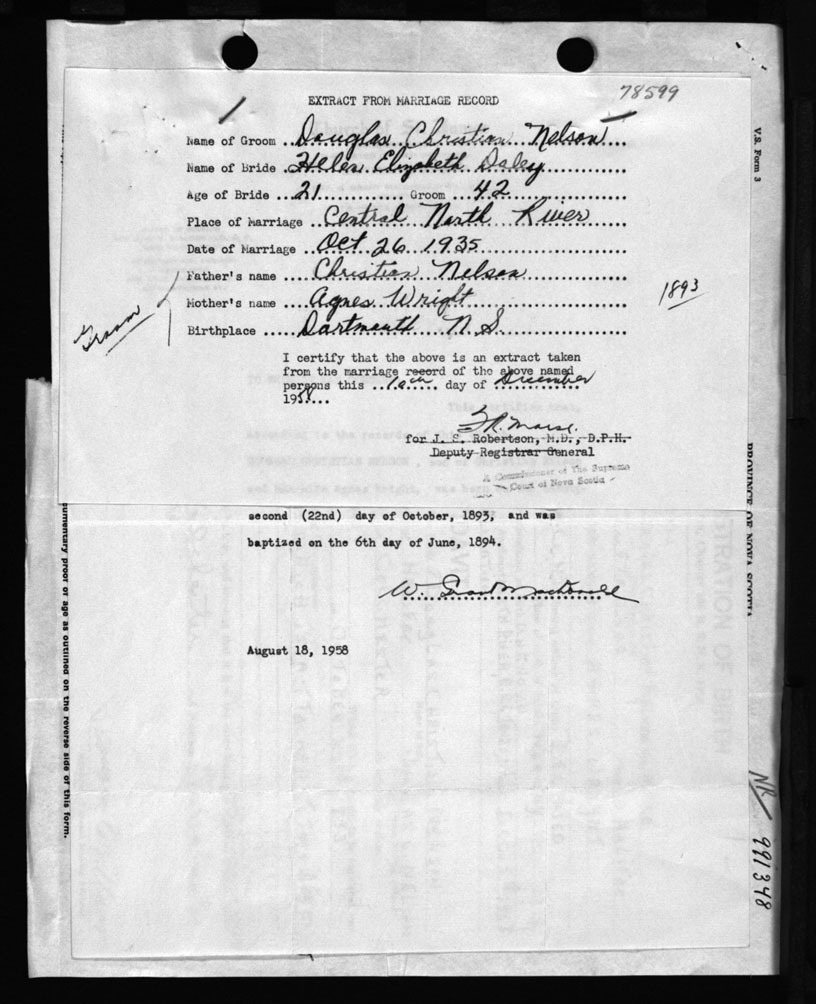 78599
EXTRACT FROM MARRIAGE RECORD
Name of Groom ..Douglas Christian Nelson...
Name of Bride ..Helen Elizabeth Daley......
Age of Bride ...21............ Groom ...42............
Place of Marriage ...Central North River.....
Date of Marriage ...Oct 26 1935.............
Father's name ....Christian Nelson..........
Mother's name ....Agnes Wright.............
Birthplace .....Dartmouth N.S..............
Groom
1893
I certify that the above is an extract taken
from the marriage record of the above named
persons this ..10th.. day of ..December..
1958...
for J. S. Robertson, M.D., D.P.H.
Deputy Registrar General
A Commissioner of The Supreme
Court of Nova Scotia
second (22nd) day of October, 1893, and was
baptized on the 6th day of June, 1894.
August 18, 1958
V.S. Form 3
PROVINCE OF NOVA SCOTIA
NR
991348
cumentary proof of age as outlined on the reverse side of this form.